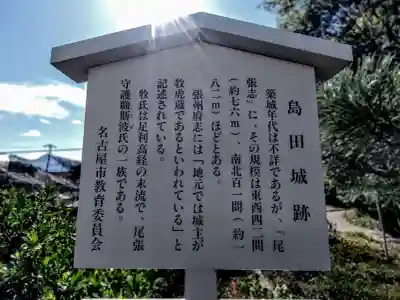 島田城跡
築城年代は不詳であるが、『尾
張志』に、その規模は東西四二間
（約七六ｍ）、南北百一間（約一
八二ｍ）ほどとある。
張州府志には「地元では城主が
牧虎蔵であるといわれている」と
記述されている。
牧氏は足利高経の末流で、尾張
守護職斯波氏の一族である。
名古屋市教育委員会